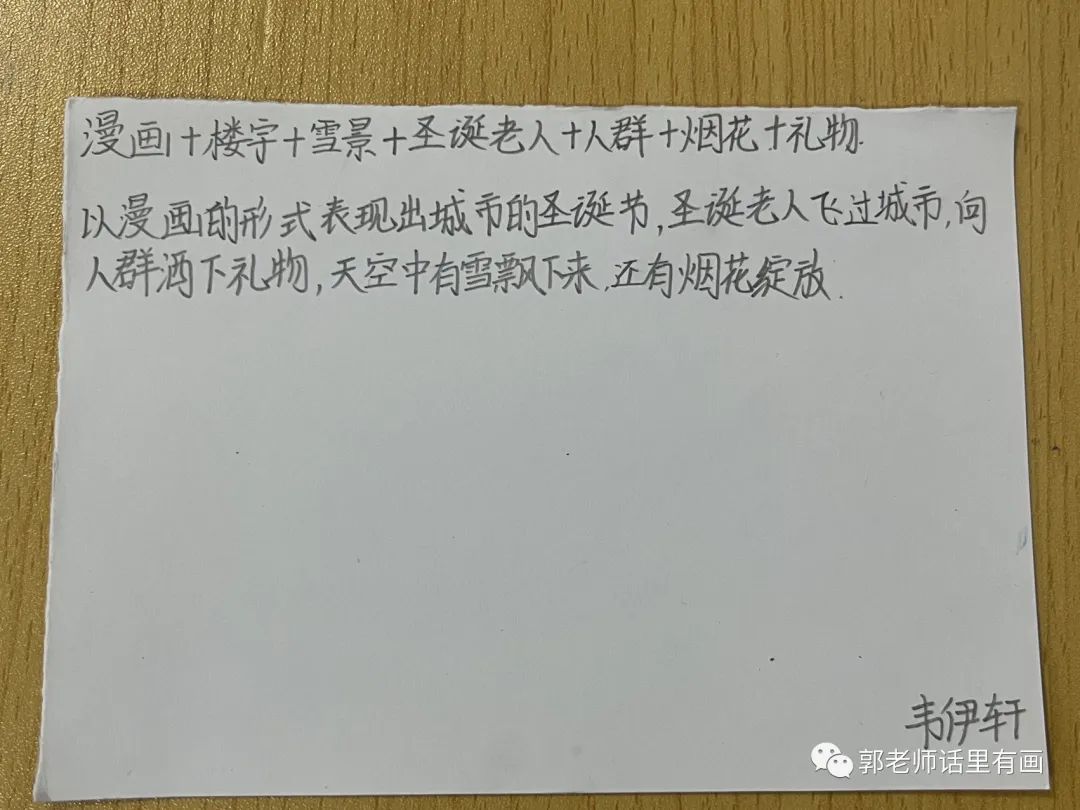 漫画+楼宇+雪景+圣诞老人+人群+烟花+礼物.
以漫画的形式表现出城市的圣诞节,圣诞老人飞过城市,向
人群洒下礼物,天空中有雪飘下来.还有烟花绽放.
韦伊轩
郭老师话里有画